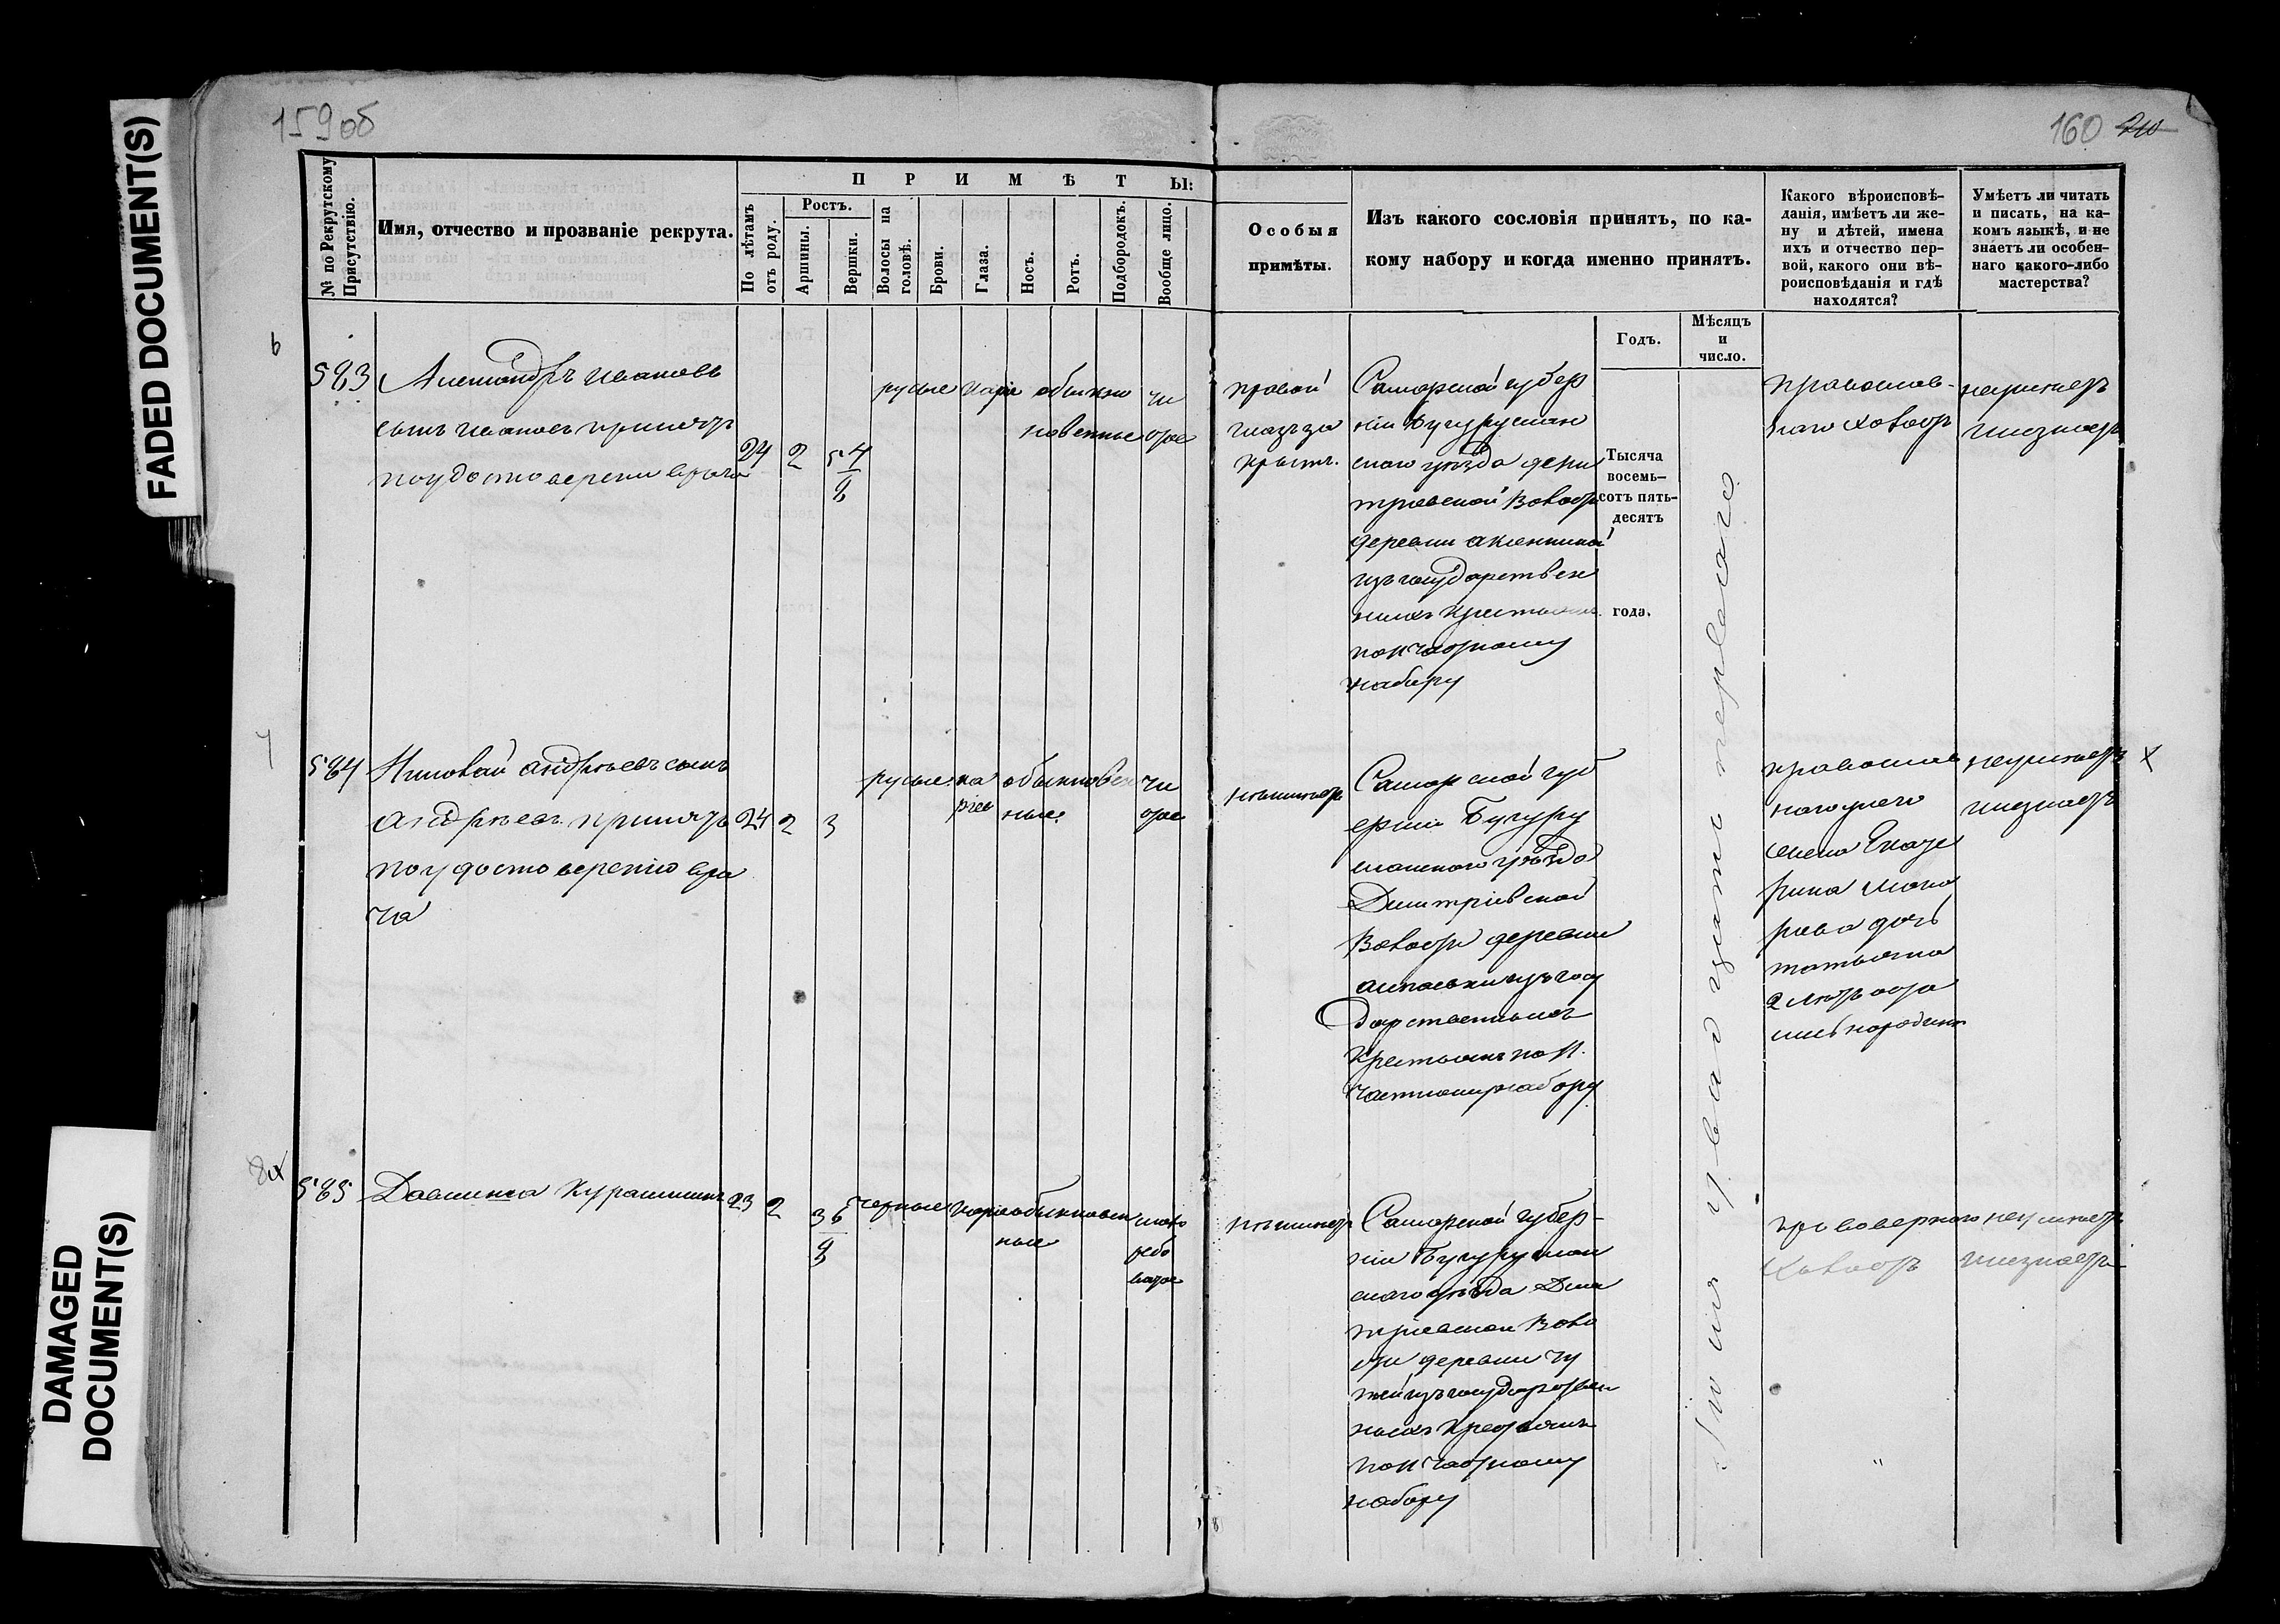 FADED DOCUMENT(S)
DAMAGED
DOCUMENT(S)
159об
160
№ по Рекрутскому
Присутствію.
Имя, отчество и прозваніе рекрута.
П Р И М Ѣ Т Ы:
По лѣтамъ
отъ роду.
Ростъ.
Аршины.
Вершки.
Волосы на
головѣ.
Брови.
Глаза.
Носъ.
Ротъ.
Подбородокъ.
Вообще лицо.
Особыя
примѣты.
Изъ какого сословія принятъ, по ка-
кому набору и когда именно принятъ.
Годъ.
Мѣсяцъ
и
число.
Какого вѣроисповѣ-
данія, имѣетъ ли же-
ну и дѣтей, имена
ихъ и отчество пер-
вой, какого они вѣ-
роисповѣданія и гдѣ
находятся?
Умѣетъ ли читать
и писать, на ка-
комъ языкѣ, и не
знаетъ ли особен-
наго какого-либо
мастерства?
Тысяча
восемь-
сотъ пять-
десятъ
года.
Іюня двадцать перваго
6
583
Александръ Ивановъ
сынъ Ивановъ принятъ
по удостоверени врача
24 2 5 4/8
русые каріе обыкно
новенные
чи
стое
правой
глазъ за
крытъ.
Самарской губер
ніи Бугуруслан
скаго уѣзда
тріевской волост
деревни
изъ государствен
ныхъ крестьянъ
по II частному
набору
православ-
наго холостъ
неумѣетъ
и незнаетъ
584
Николай Андрѣевъ сынъ
Андрѣевъ принятъ
по удостоверенію вра
ча
24 2 3
русые ка
ріе
обыкновен
ные
чи
стое
неимѣетъ
Самарской губ
ерніи Бугуру
сланскаго уѣзда
Димитріевской
волости деревни
изъ госу
дарственныхъ
крестьянъ по II
частному набору
православ
наго у него
жена Екате
рина Мака
рова дочь
Татьяна
2 лѣтъ оста
лись на родинѣ
неумѣетъ
и незнаетъ
х
585
23 2 3 6/8
черные каріе обыкновен
ные
неимѣетъ
Самарской губер-
ніи Бугуруслан
скаго уѣзда Дми
тріевской воло
сти деревни
изъ государствен
ныхъ крестьянъ
по II частному
набору
холостъ
неумѣетъ
и незнаетъ
"